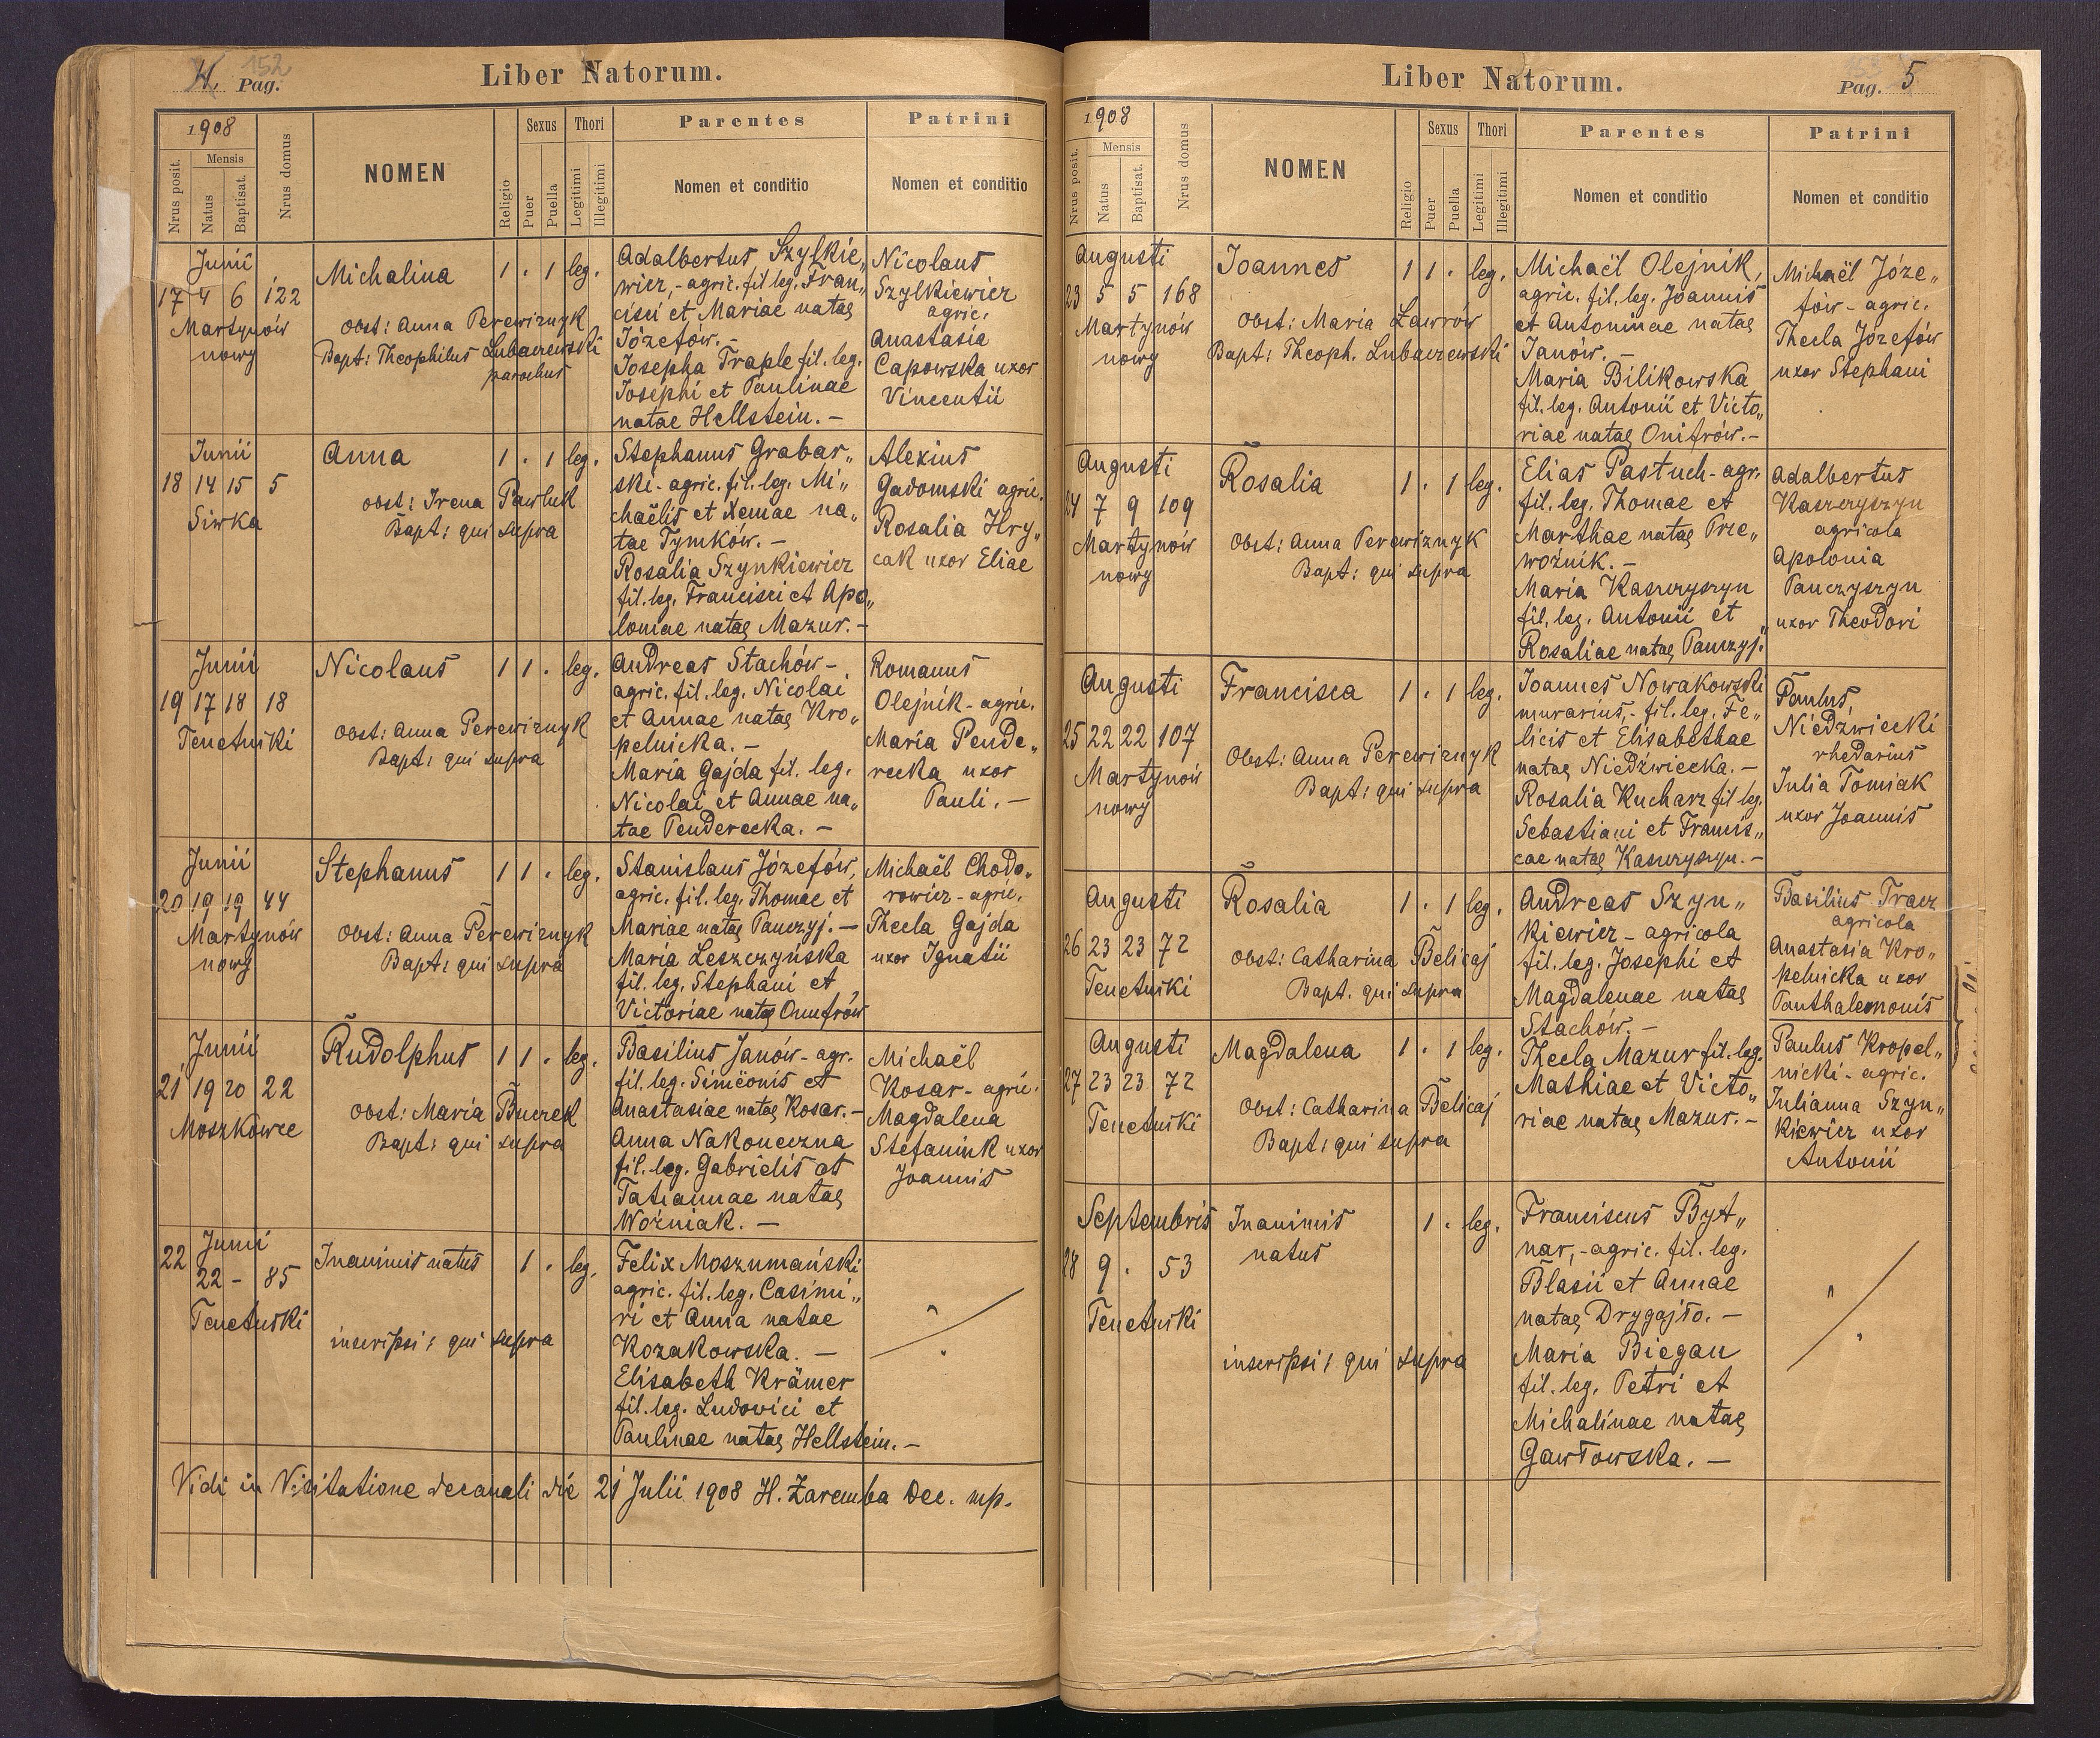 4. Pag. 152
Liber Natorum.
1908
Nrus posit.
Mensis
Natus
Baptisat.
Nrus domus
NOMEN
Religio
Sexus
Puer
Puella
Thori
Legitimi
Illegitimi
Parentes
Nomen et conditio
Patrini
Nomen et conditio
Junii
17 4 6 122
Martynów
nowy
Michalina
Obst: Anna Perewiznyk
Bapt: Theophilus Lubaczewski
parochus
1 . 1 leg.
Adalbertus Szylkie„
wicz, - agric. fil. leg. Fran„
cisci et Mariae natae
Józefów. -
Josepha Traple fil. leg.
Josephi et Paulinae
natae Hellstein. -
Nicolaus
Szylkiewicz
agric.
Anastasia
Capowska uxor
Vincentii
Junii
18 14 15 5
Siwka
Anna
Obst: Irena Pawluk
Bapt: qui supra
1 . 1 leg.
Stephanus Grabar„
ski - agric. fil. leg. Mi„
chaëlis et Xeniae na„
tae Tymków. -
Rosalia Szynkiewicz
fil. leg. Francisci et Apo„
loniae natae Mazur. -
Alexius
Gadomski agric.
Rosalia Hry„
cak uxor Eliae
Junii
19 17 18 18
Tenetniki
Nicolaus
Obst: Anna Perewiznyk
Bapt: qui supra
1 1 . leg.
Andreas Stachów -
agric. fil. leg. Nicolai
et Annae natae Kro„
pelnicka. -
Maria Gajda fil. leg.
Nicolai et Annae na„
tae Penderecka. -
Romanus
Olejnik - agric.
Maria Pende„
recka uxor
Pauli. -
Junii
20 19 19 44
Martynów
nowy
Stephanus
Obst: Anna Perewiznyk
Bapt: qui supra
1 1 . leg.
Stanislaus Józefów,
agric. fil. leg. Thomae et
Mariae natae Panczyj. -
Maria Leszczyńska
fil. leg. Stephani et
Victoriae natae Onufrów
Michaël Chodo„
rowicz - agric.
Thecla Gajda
uxor Ignatii
Junii
21 19 20 22
Moszkowce
Rudolphus
Obst: Maria Buczek
Bapt: qui supra
1 1 . leg.
Basilius Janów - agr.
fil. leg. Simeonis et
Anastasiae natae Kosar. -
Anna Nakoneczna
fil. leg. Gabrielis et
Tatiannae natae
Woźniak. -
Michaël
Kosar - agric.
Magdalena
Stefaniuk uxor
Joannis
22 Junii
22 - 85
Tenetniki
Inanimis natus
inscripsi: qui supra
1 . leg.
Felix Moszumański
agric. fil. leg. Casimi„
ri et Anna natae
Kozakowska. -
Elisabeth Krämer
fil. leg. Ludovici et
Paulinae natae Hellstein. -
Vidi in Visitatione decanali die 21 Julii 1908 H. Zaremba Dec. mp.
Liber Natorum.
Pag. 5
1908
Nrus posit.
Mensis
Natus
Baptisat.
Nrus domus
NOMEN
Religio
Sexus
Puer
Puella
Thori
Legitimi
Illegitimi
Parentes
Nomen et conditio
Patrini
Nomen et conditio
Augusti
23 5 5 168
Martynów
nowy
Joannes
Obst: Maria Ławrów
Bapt: Theoph. Lubaczewski
1 1 . leg.
Michaël Olejnik,
agric. fil. leg. Joannis
et Antoninae natae
Janów. -
Maria Bilikowska
fil. leg. Antonii et Victo„
riae natae Onifrów. -
Michaël Józe„
fów - agric.
Thecla Józefów
uxor Stephani
Augusti
24 7 9 109
Martynów
nowy
Rosalia
Obst: Anna Perewiznyk
Bapt: qui supra
1 . 1 leg.
Elias Pastuch - agr.
fil. leg. Thomae et
Marthae natae Prze„
woźnik. -
Maria Kaszczyszyn
fil. leg. Antonii et
Rosaliae natae Panczyj.
Adalbertus
Kaszczyszyn
agricola
Apolonia
Panczyszyn
uxor Theodori
Augusti
25 22 22 107
Martynów
nowy
Francisca
Obst: Anna Perewiznyk
Bapt: qui supra
1 . 1 leg.
Joannes Nowakowski
murarius, - fil. leg. Fe„
licis et Elisabethae
natae Niedźwiecka. -
Rosalia Kucharz fil. leg.
Sebastiani et Francis„
cae natae Kaszczyszyn. -
Paulus
Niedźwiecki
rhedarius
Julia Tomiak
uxor Joannis
Augusti
26 23 23 72
Tenetniki
Rosalia
Obst: Catharina Belicaj
Bapt. qui supra
1 . 1 leg.
Andreas Szyn„
kiewicz - agricola
fil. leg. Josephi et
Magdalenae natae
Stachów. -
Thecla Mazur fil. leg.
Mathiae et Victo„
riae natae Mazur. -
Basilius Tracz
agricola
Anastasia Kro„
pelnicka uxor
Panthalemonis
Augusti
27 23 23 72
Tenetniki
Magdalena
Obst: Catharina Belicaj
Bapt: qui supra
1 . 1 leg.
Paulus Kropel„
nicki - agric.
Julianna Szyn„
kiewicz uxor
Antonii
Septembris
28 9 . 53
Tenetniki
Inanimis
natus
inscripsi: qui supra
1 . leg.
Franciscus Byt„
nar, - agric. fil. leg.
Blasii et Annae
natae Drygajło. -
Maria Biegan
fil. leg. Petri et
Michalinae natae
Gawłowska. -